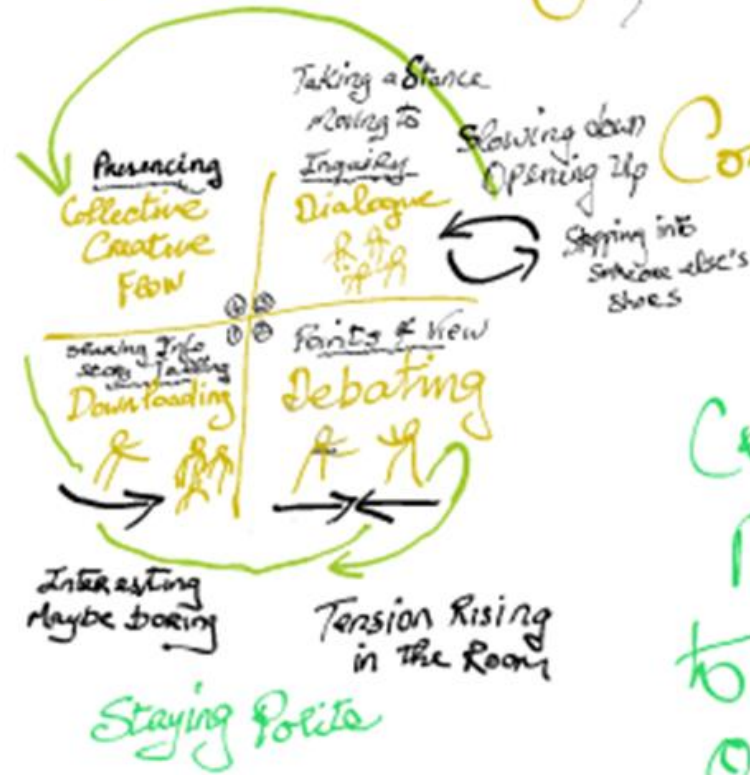 Taking a Stance
Moving to
Inquiry
Dialogue
Slowing down
Opening Up
Stepping into
someone else's
shoes
Presencing
Collective
Creative
Flow
Sharing Info
Story Telling
Downloading
Points of View
Debating
Interesting
Maybe boring
Tension Rising
in the Room
Staying Polite
to